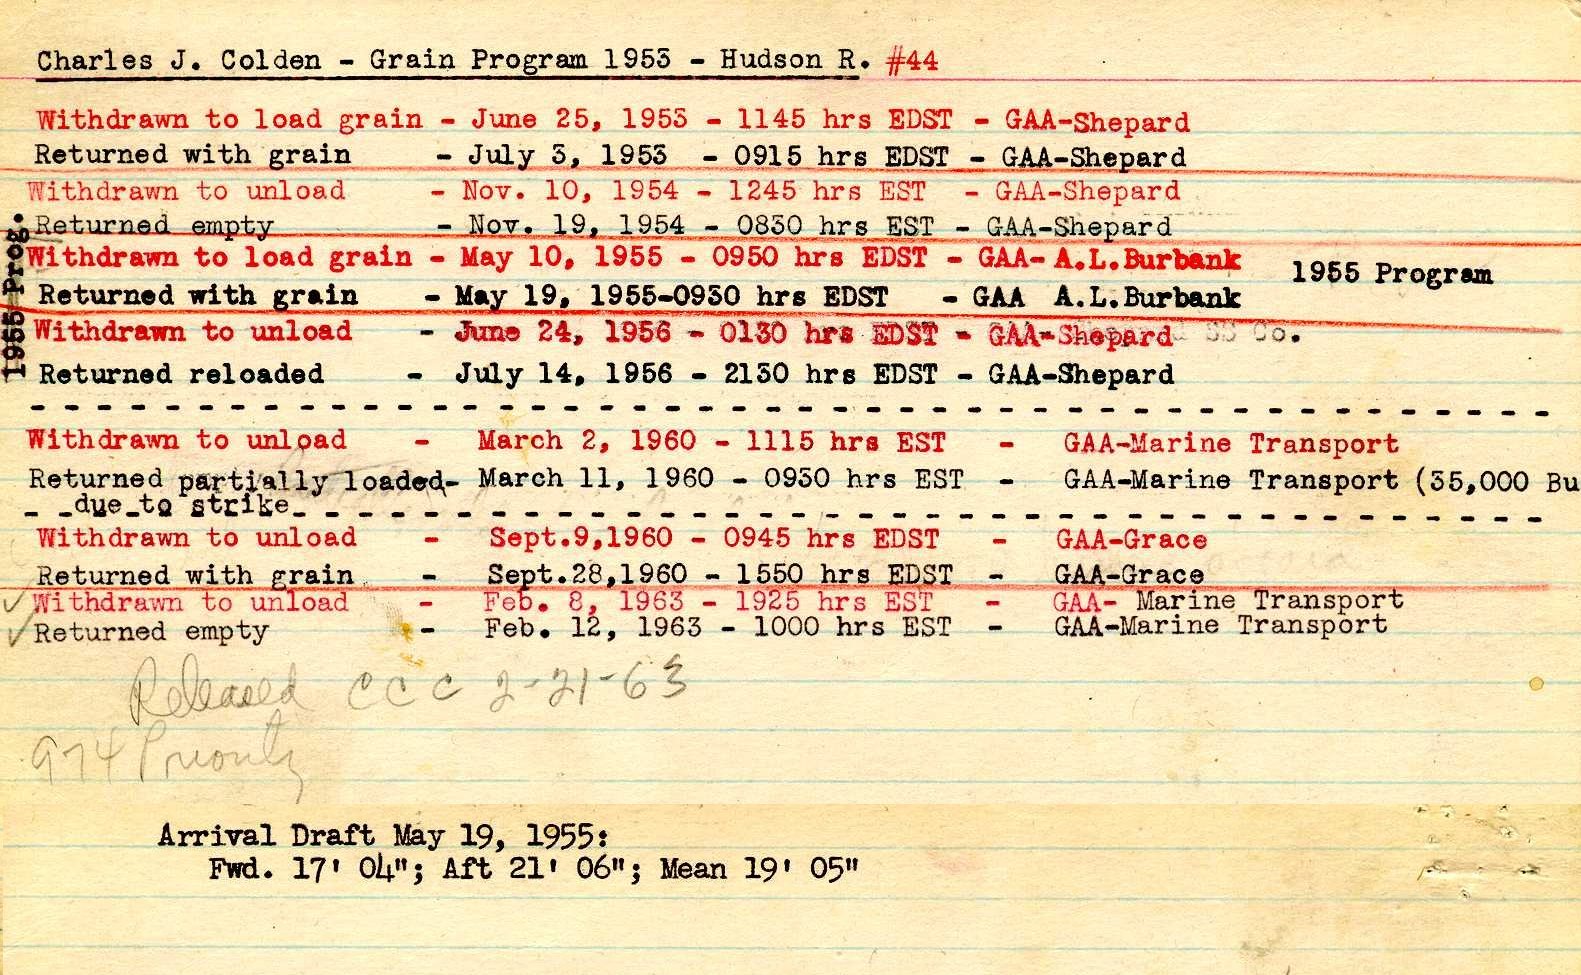 Charles J. Colden - Grain Program 1953 - Hudson R. #44
Withdrawn to load grain - June 25, 1953 - 1145 hrs EDST - GAA-Shepard
Returned with grain - July 3, 1953 - 0915 hrs EDST - GAA-Shepard
Withdrawn to unload - Nov. 10, 1954 - 1245 hrs EST - GAA-Shepard
Returned empty - Nov. 19, 1954 - 0830 hrs EST - GAA-Shepard
1955 Prog.
Withdrawn to load grain - May 10, 1955 - 0950 hrs EDST - GAA- A.L.Burbank
1955 Program
Returned with grain - May 19, 1955-0930 hrs EDST - GAA A.L.Burbank
Withdrawn to unload - June 24, 1956 - 0130 hrs EDST - GAA-Shepard SS Co.
Returned reloaded - July 14, 1956 - 2130 hrs EDST - GAA-Shepard
Withdrawn to unload - March 2, 1960 - 1115 hrs EST - GAA-Marine Transport
Returned partially loaded- March 11, 1960 - 0930 hrs EST - GAA-Marine Transport (35,000 Bu
due to strike
Withdrawn to unload - Sept.9,1960 - 0945 hrs EDST - GAA-Grace
Returned with grain - Sept.28,1960 - 1550 hrs EDST - GAA-Grace
✓ Withdrawn to unload - Feb. 8, 1963 - 1925 hrs EST - GAA- Marine Transport
✓ Returned empty - Feb. 12, 1963 - 1000 hrs EST - GAA-Marine Transport
Released CCC 2-21-63
974 Priority
Arrival Draft May 19, 1955:
Fwd. 17' 04"; Aft 21' 06"; Mean 19' 05"